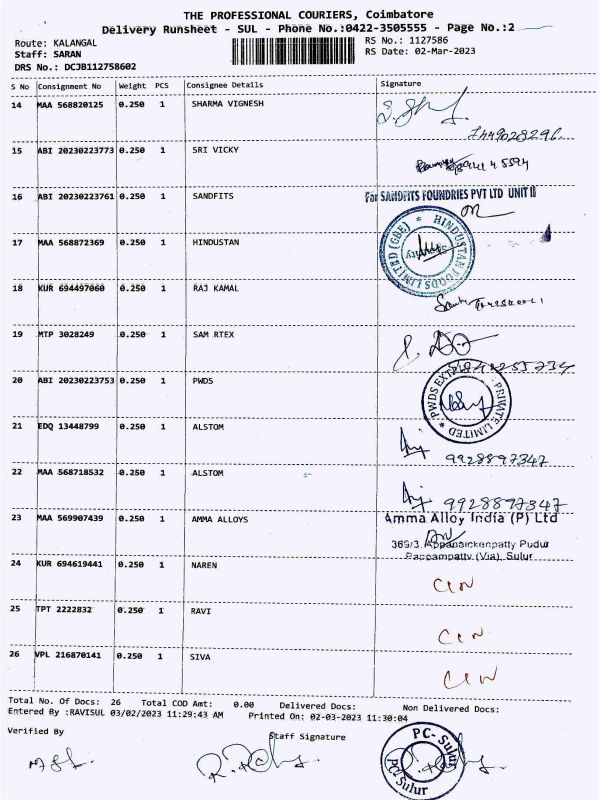 THE PROFESSIONAL COURIERS, Coimbatore
Delivery Runsheet - SUL - Phone No.:0422-3505555 - Page No.:2
Route: KALANGAL RS No.: 1127586
Staff: SARAN RS Date: 02-Mar-2023
DRS No.: DCJB112758602
S No Consignment No Weight PCS Consignee Details Signature
14 MAA 568820125 0.250 1 SHARMA VIGNESH
7449028296
15 ABI 20230223773 0.250 1 SRI VICKY
16 ABI 20230223761 0.250 1 SANDFITS For SANDFITS FOUNDRIES PVT LTD UNIT II
17 MAA 568872369 0.250 1 HINDUSTAN
HINDUSTAN FOODS LIMITED (GBE) *
Security
18 KUR 694497060 0.250 1 RAJ KAMAL
19 MTP 3028249 0.250 1 SAM RTEX
20 ABI 20230223753 0.250 1 PWDS
PRIVATE LIMITED * PWDS
21 EDQ 13448799 0.250 1 ALSTOM
9928897347
22 MAA 568718532 0.250 1 ALSTOM
9928897347
23 MAA 569907439 0.250 1 AMMA ALLOYS Amma Alloy India (P) Ltd
369/3, Appanaickenpatty Pudur
Pappampatty (Via), Sulur
24 KUR 694619441 0.250 1 NAREN
CLN
25 TPT 2222832 0.250 1 RAVI
CLN
26 VPL 216870141 0.250 1 SIVA
CLN
Total No. Of Docs: 26 Total COD Amt: 0.00 Delivered Docs: Non Delivered Docs:
Entered By :RAVISUL 03/02/2023 11:29:43 AM Printed On: 02-03-2023 11:30:04
Verified By Staff Signature
PC- Sulur
PCI Sulur